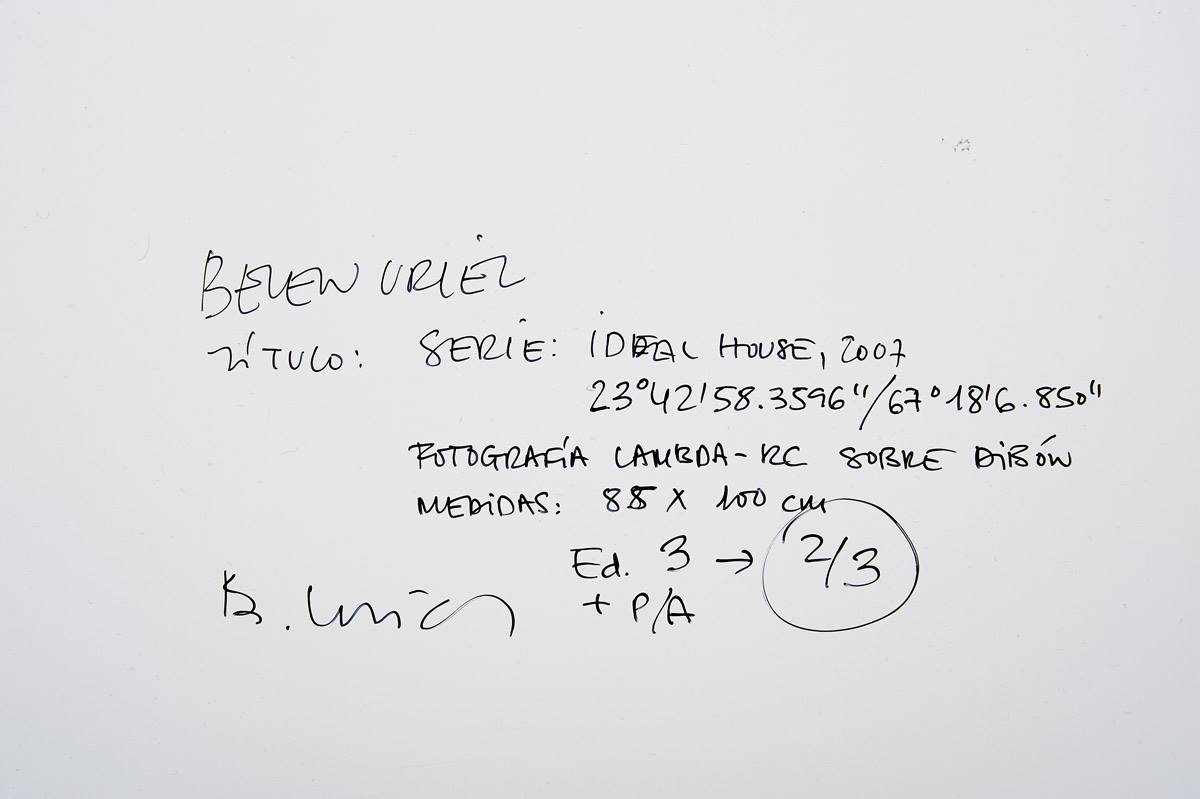 BELEN URIEL
TÍTULO: SERIE: IDEAL HOUSE, 2007
23°42'58.3596"/67°18'6.850"
FOTOGRAFÍA LAMBDA-RC SOBRE DIBÓN
MEDIDAS: 85 X 100 cm
Ed. 3 → 2/3
+ P/A
B. Uriel